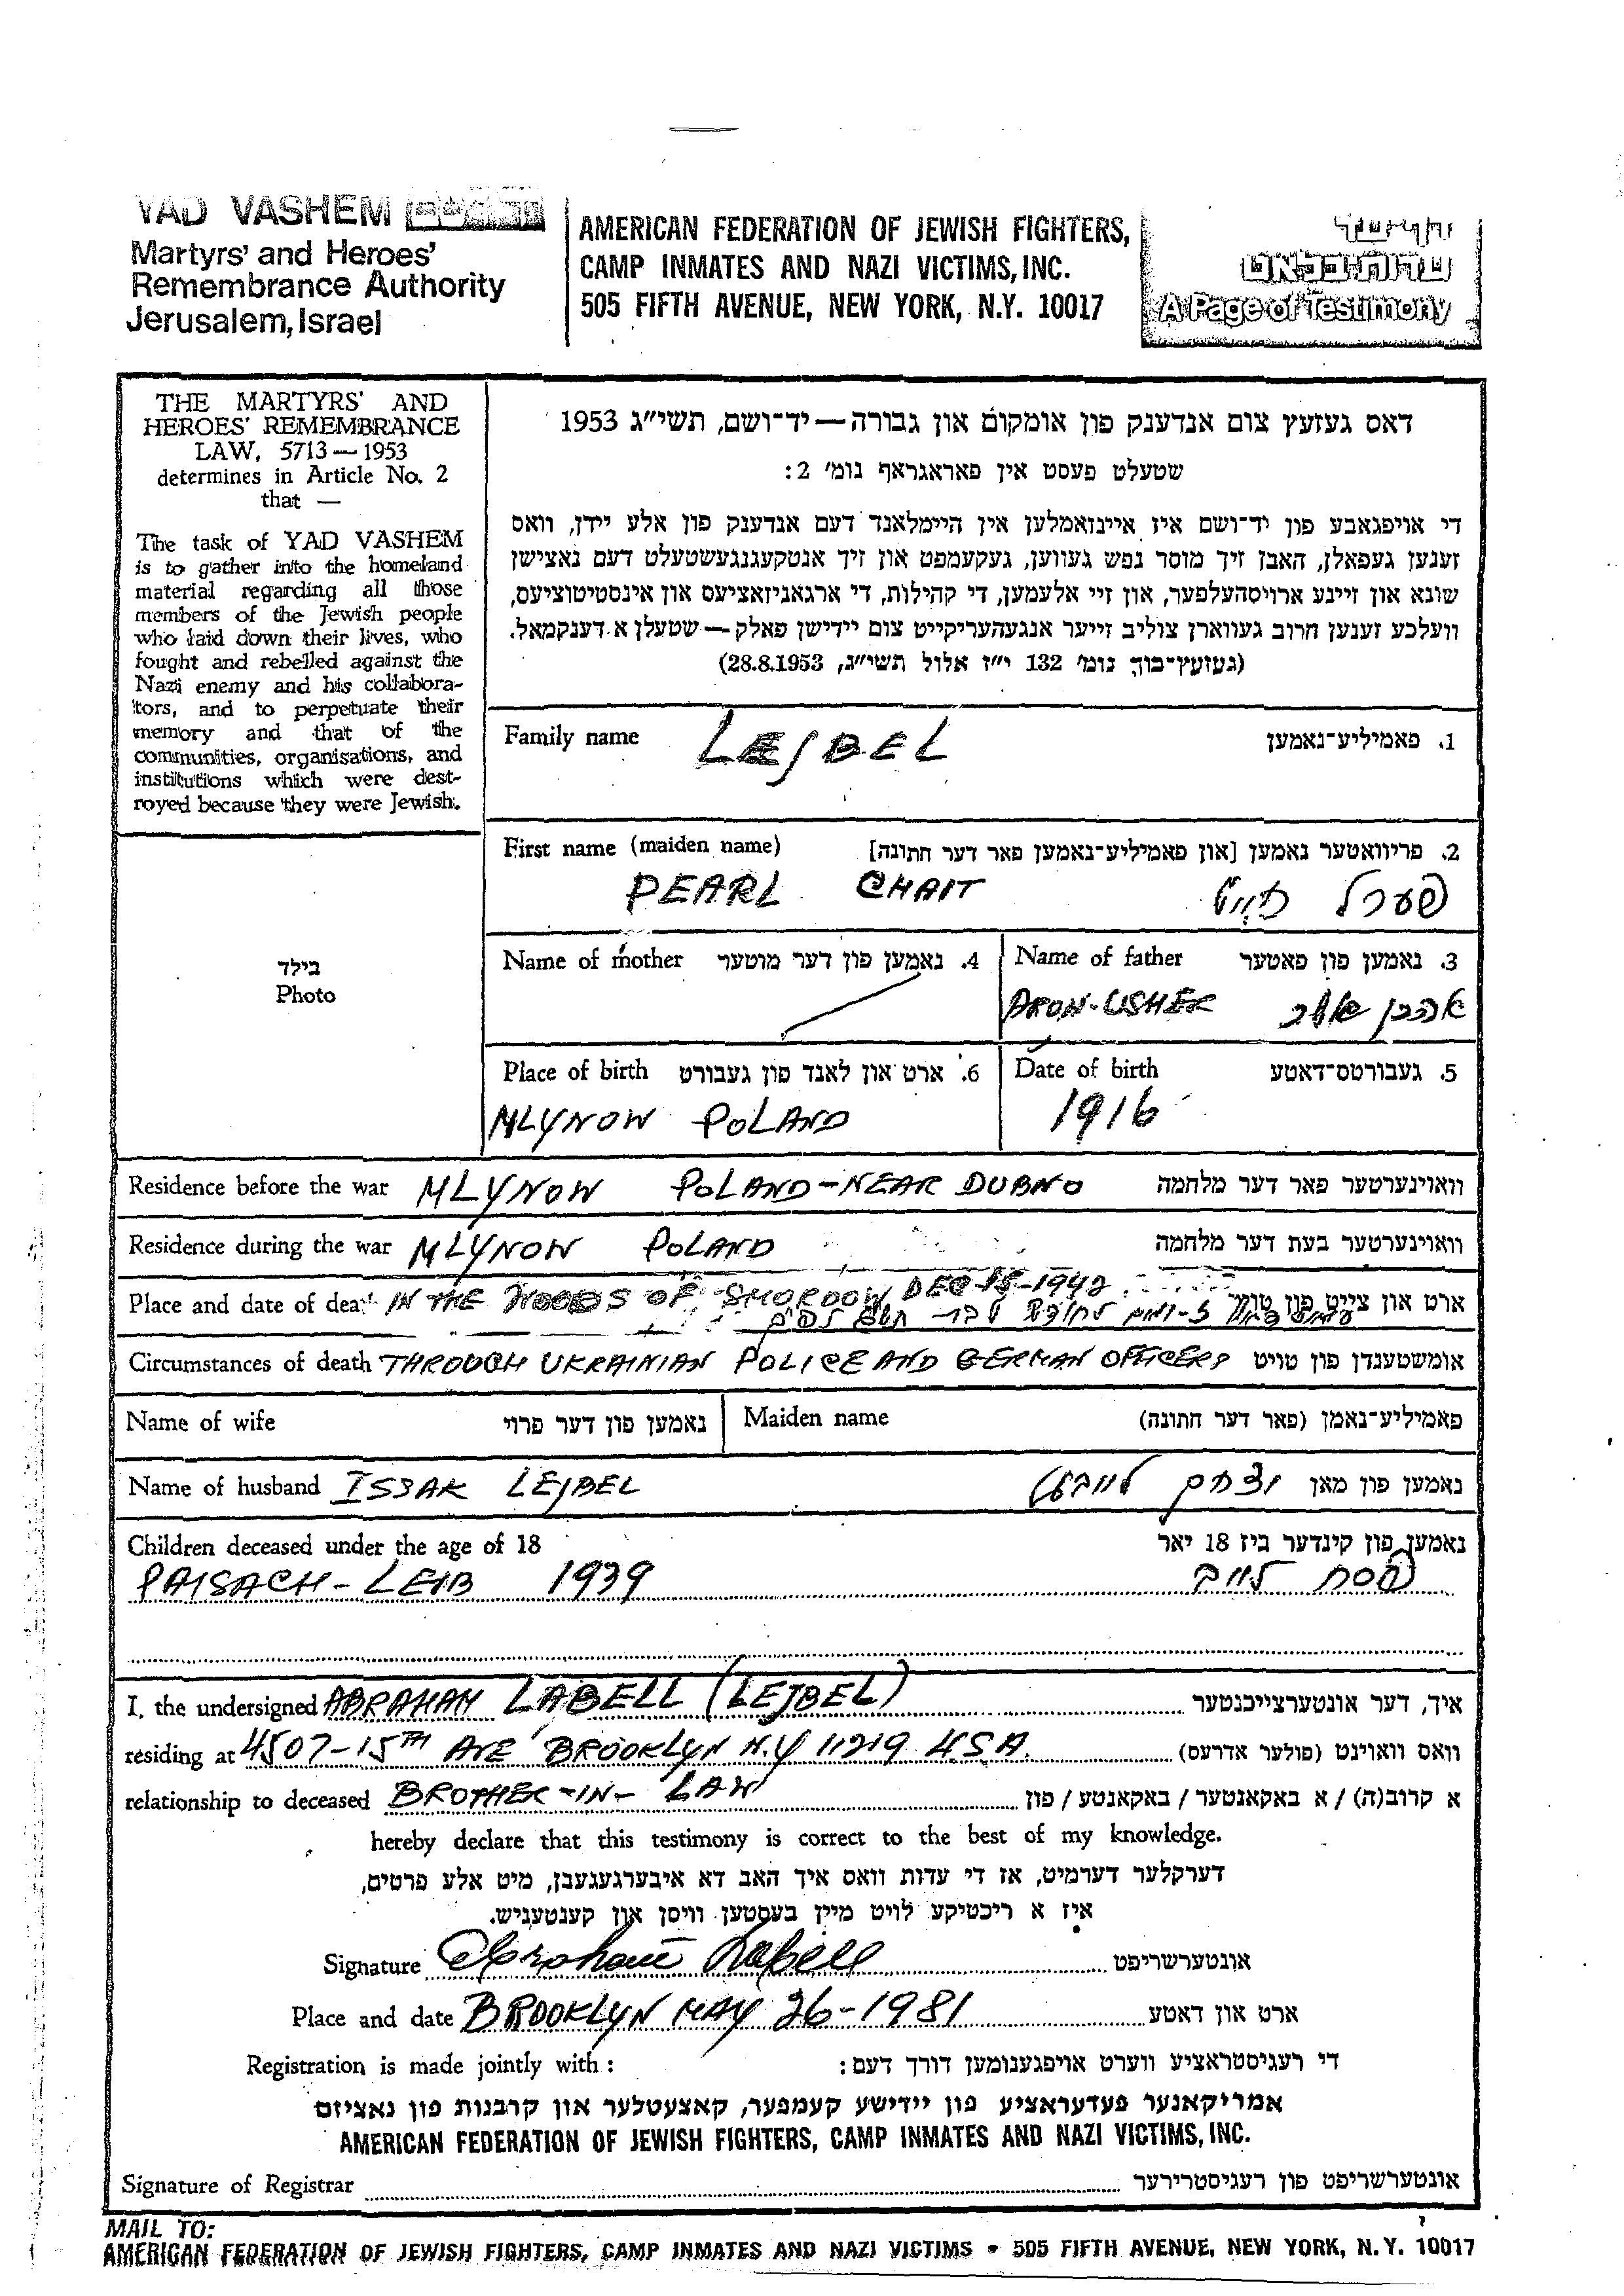 YAD VASHEM יד ושם
Martyrs' and Heroes'
Remembrance Authority
Jerusalem, Israel
AMERICAN FEDERATION OF JEWISH FIGHTERS,
CAMP INMATES AND NAZI VICTIMS, INC.
505 FIFTH AVENUE, NEW YORK, N.Y. 10017
עדות־בלאט
A Page of Testimony
THE MARTYRS' AND
HEROES' REMEMBRANCE
LAW, 5713 — 1953
determines in Article No. 2
that —
The task of YAD VASHEM
is to gather into the homeland
material regarding all those
members of the Jewish people
who laid down their lives, who
fought and rebelled against the
Nazi enemy and his collabora-
tors, and to perpetuate their
memory and that of the
communities, organisations, and
institutions which were dest-
royed because they were Jewish.
דאס געזעץ צום אנדענק פון אומקום און גבורה — יד־ושם, תשי״ג 1953
שטעלט פעסט אין פאראגראף נומ׳ 2:
די אויפגאבע פון יד־ושם איז איינזאמלען אין היימלאנד דעם אנדענק פון אלע יידן, וואס
זענען געפאלן, האבן זיך מוסר נפש געווען, געקעמפט און זיך אנטקעגנגעשטעלט דעם נאצישן
שונא און זיינע ארויסהעלפער, און זיי אלעמען, די קהילות, די ארגאניזאציעס און אינסטיטוציעס,
וועלכע זענען חרוב געווארן צוליב זייער אנגעהעריקייט צום יידישן פאלק — שטעלן א דענקמאל.
(געזעץ־בוך נומ׳ 132 י״ז אלול תשי״ג, 28.8.1953)
Family name LEJBEL 1. פאמיליע־נאמען
First name (maiden name) 2. פריוואטער נאמען [און פאמיליע־נאמען פאר דער חתונה]
PEARL CHAIT פערל חייט
Name of mother 4. נאמען פון דער מוטער Name of father 3. נאמען פון פאטער
ARON-USHER אהרן אשר
Place of birth 6. ארט און לאנד פון געבורט Date of birth 5. געבורטס־דאטע
MLYNOW POLAND 1916
Residence before the war MLYNOW POLAND-NEAR DUBNO וואוינערטער פאר דער מלחמה
Residence during the war MLYNOW POLAND וואוינערטער בעת דער מלחמה
Place and date of death IN THE WOODS OF SMORDOW DEC-15-1942 ארט און צייט פון טויט
Circumstances of death THROUGH UKRAINIAN POLICE AND GERMAN OFFICERS אומשטענדן פון טויט
Name of wife נאמען פון דער פרוי Maiden name פאמיליע־נאמן (פאר דער חתונה)
Name of husband ISSAK LEJBEL יצחק לייבעל נאמען פון מאן
Children deceased under the age of 18 נאמען פון קינדער ביז 18 יאר
PAISACH-LEIB 1939 פסח לייב
I, the undersigned ABRAHAM LABELL (LEJBEL) איך, דער אונטערצייכנטער
residing at 4507-15TH AVE BROOKLYN N.Y 11219 USA. וואס וואוינט (פולער אדרעס)
relationship to deceased BROTHER-IN-LAW א קרוב(ה) / א באקאנטער / באקאנטע / פון
hereby declare that this testimony is correct to the best of my knowledge.
דערקלער דערמיט, אז די עדות וואס איך האב דא איבערגעגעבן, מיט אלע פרטים,
איז א ריכטיקע לויט מיין בעסטען וויסן און קענטעניש.
Signature Abraham Labell אונטערשריפט
Place and date BROOKLYN MAY 26-1981 ארט און דאטע
Registration is made jointly with : די רעגיסטראציע ווערט אויפגענומען דורך דעם:
אמריקאנער פעדעראציע פון יידישע קעמפער, קאצעטלער און קרבנות פון נאציזם
AMERICAN FEDERATION OF JEWISH FIGHTERS, CAMP INMATES AND NAZI VICTIMS, INC.
Signature of Registrar אונטערשריפט פון רעגיסטרירער
MAIL TO:
AMERICAN FEDERATION OF JEWISH FIGHTERS, CAMP INMATES AND NAZI VICTIMS • 505 FIFTH AVENUE, NEW YORK, N.Y. 10017